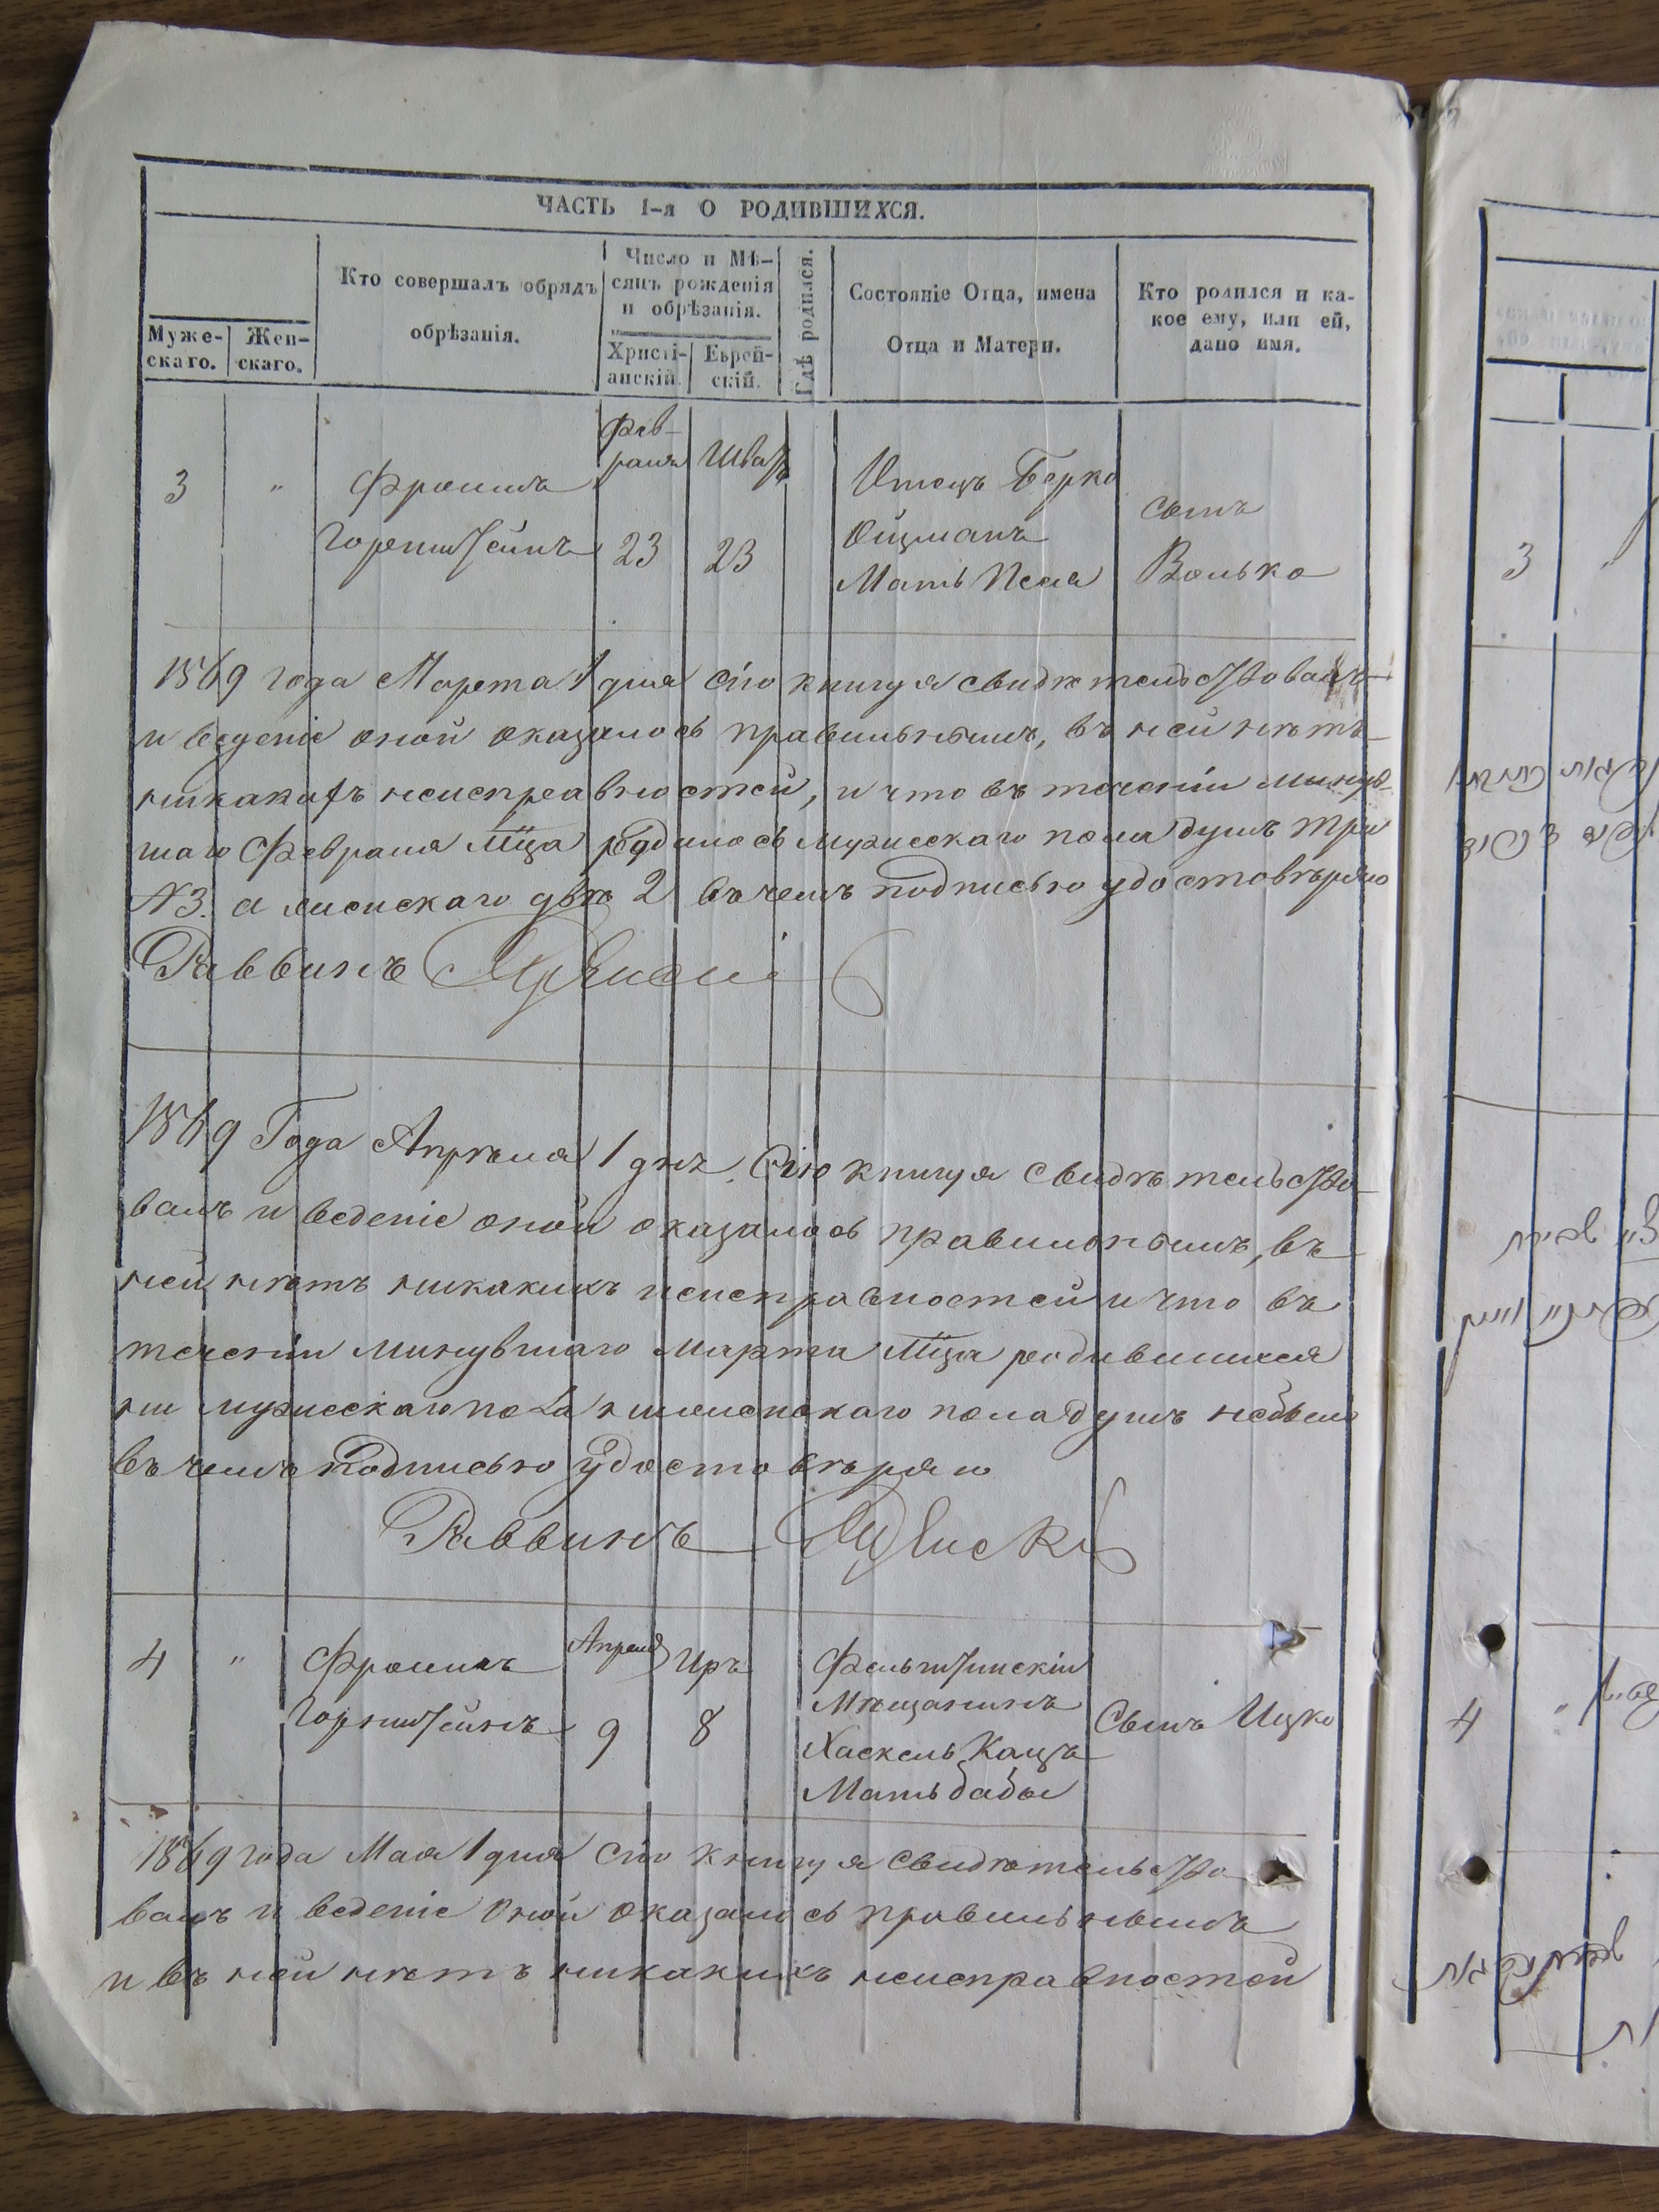 ЧАСТЬ 1-я О РОДИВШИХСЯ.
Муже-
скаго.
Жен-
скаго.
Кто совершалъ обрядъ
обрѣзанія.
Число и Мѣ-
сяцъ рожденія
и обрѣзанія.
Христі-
анскій.
Еврей-
скій.
Гдѣ родился.
Состояніе Отца, имена
Отца и Матери.
Кто родился и ка-
кое ему, или ей,
дано имя.
3 "
Фроимъ
Горенштейнъ
Фев-
раля
23
Шватъ
23
Отецъ Берко
Ойцманъ
Мать Песя
сынъ
Волько
1869 года Марта 1 дня сію книгу я свидѣтельствовалъ
и веденіе оной оказалось правильнымъ, въ ней нѣтъ
никакихъ неисправностей, и что въ теченіи минув-
шаго Февраля М-ца родилось мужескаго пола душъ три
№3. а женскаго двѣ 2 въ чемъ подписью удостовѣряю
Раввинъ
1869 Года Апрѣля 1 дня. Сію книгу я свидѣтельство-
валъ и веденіе оной оказалось правильнымъ, въ
ней нѣтъ никакихъ неисправностей и что въ
теченіи минувшаго Марта М-ца родившихся
ни мужескаго пола ни женскаго пола душъ небыло
въ чемъ подписью удостовѣряю
Раввинъ
4 "
Фроимъ
Горенштейнъ
Апреля
9
Иръ
8
Фельштинскій
Мѣщанинъ
Хаскель Кацъ
Мать бабы
Сынъ Ицко
1869 года Мая 1 дня сію книгу я свидѣтельство-
валъ и веденіе оной оказалось правильнымъ
и въ ней нѣтъ никакихъ неисправностей
3
4 "